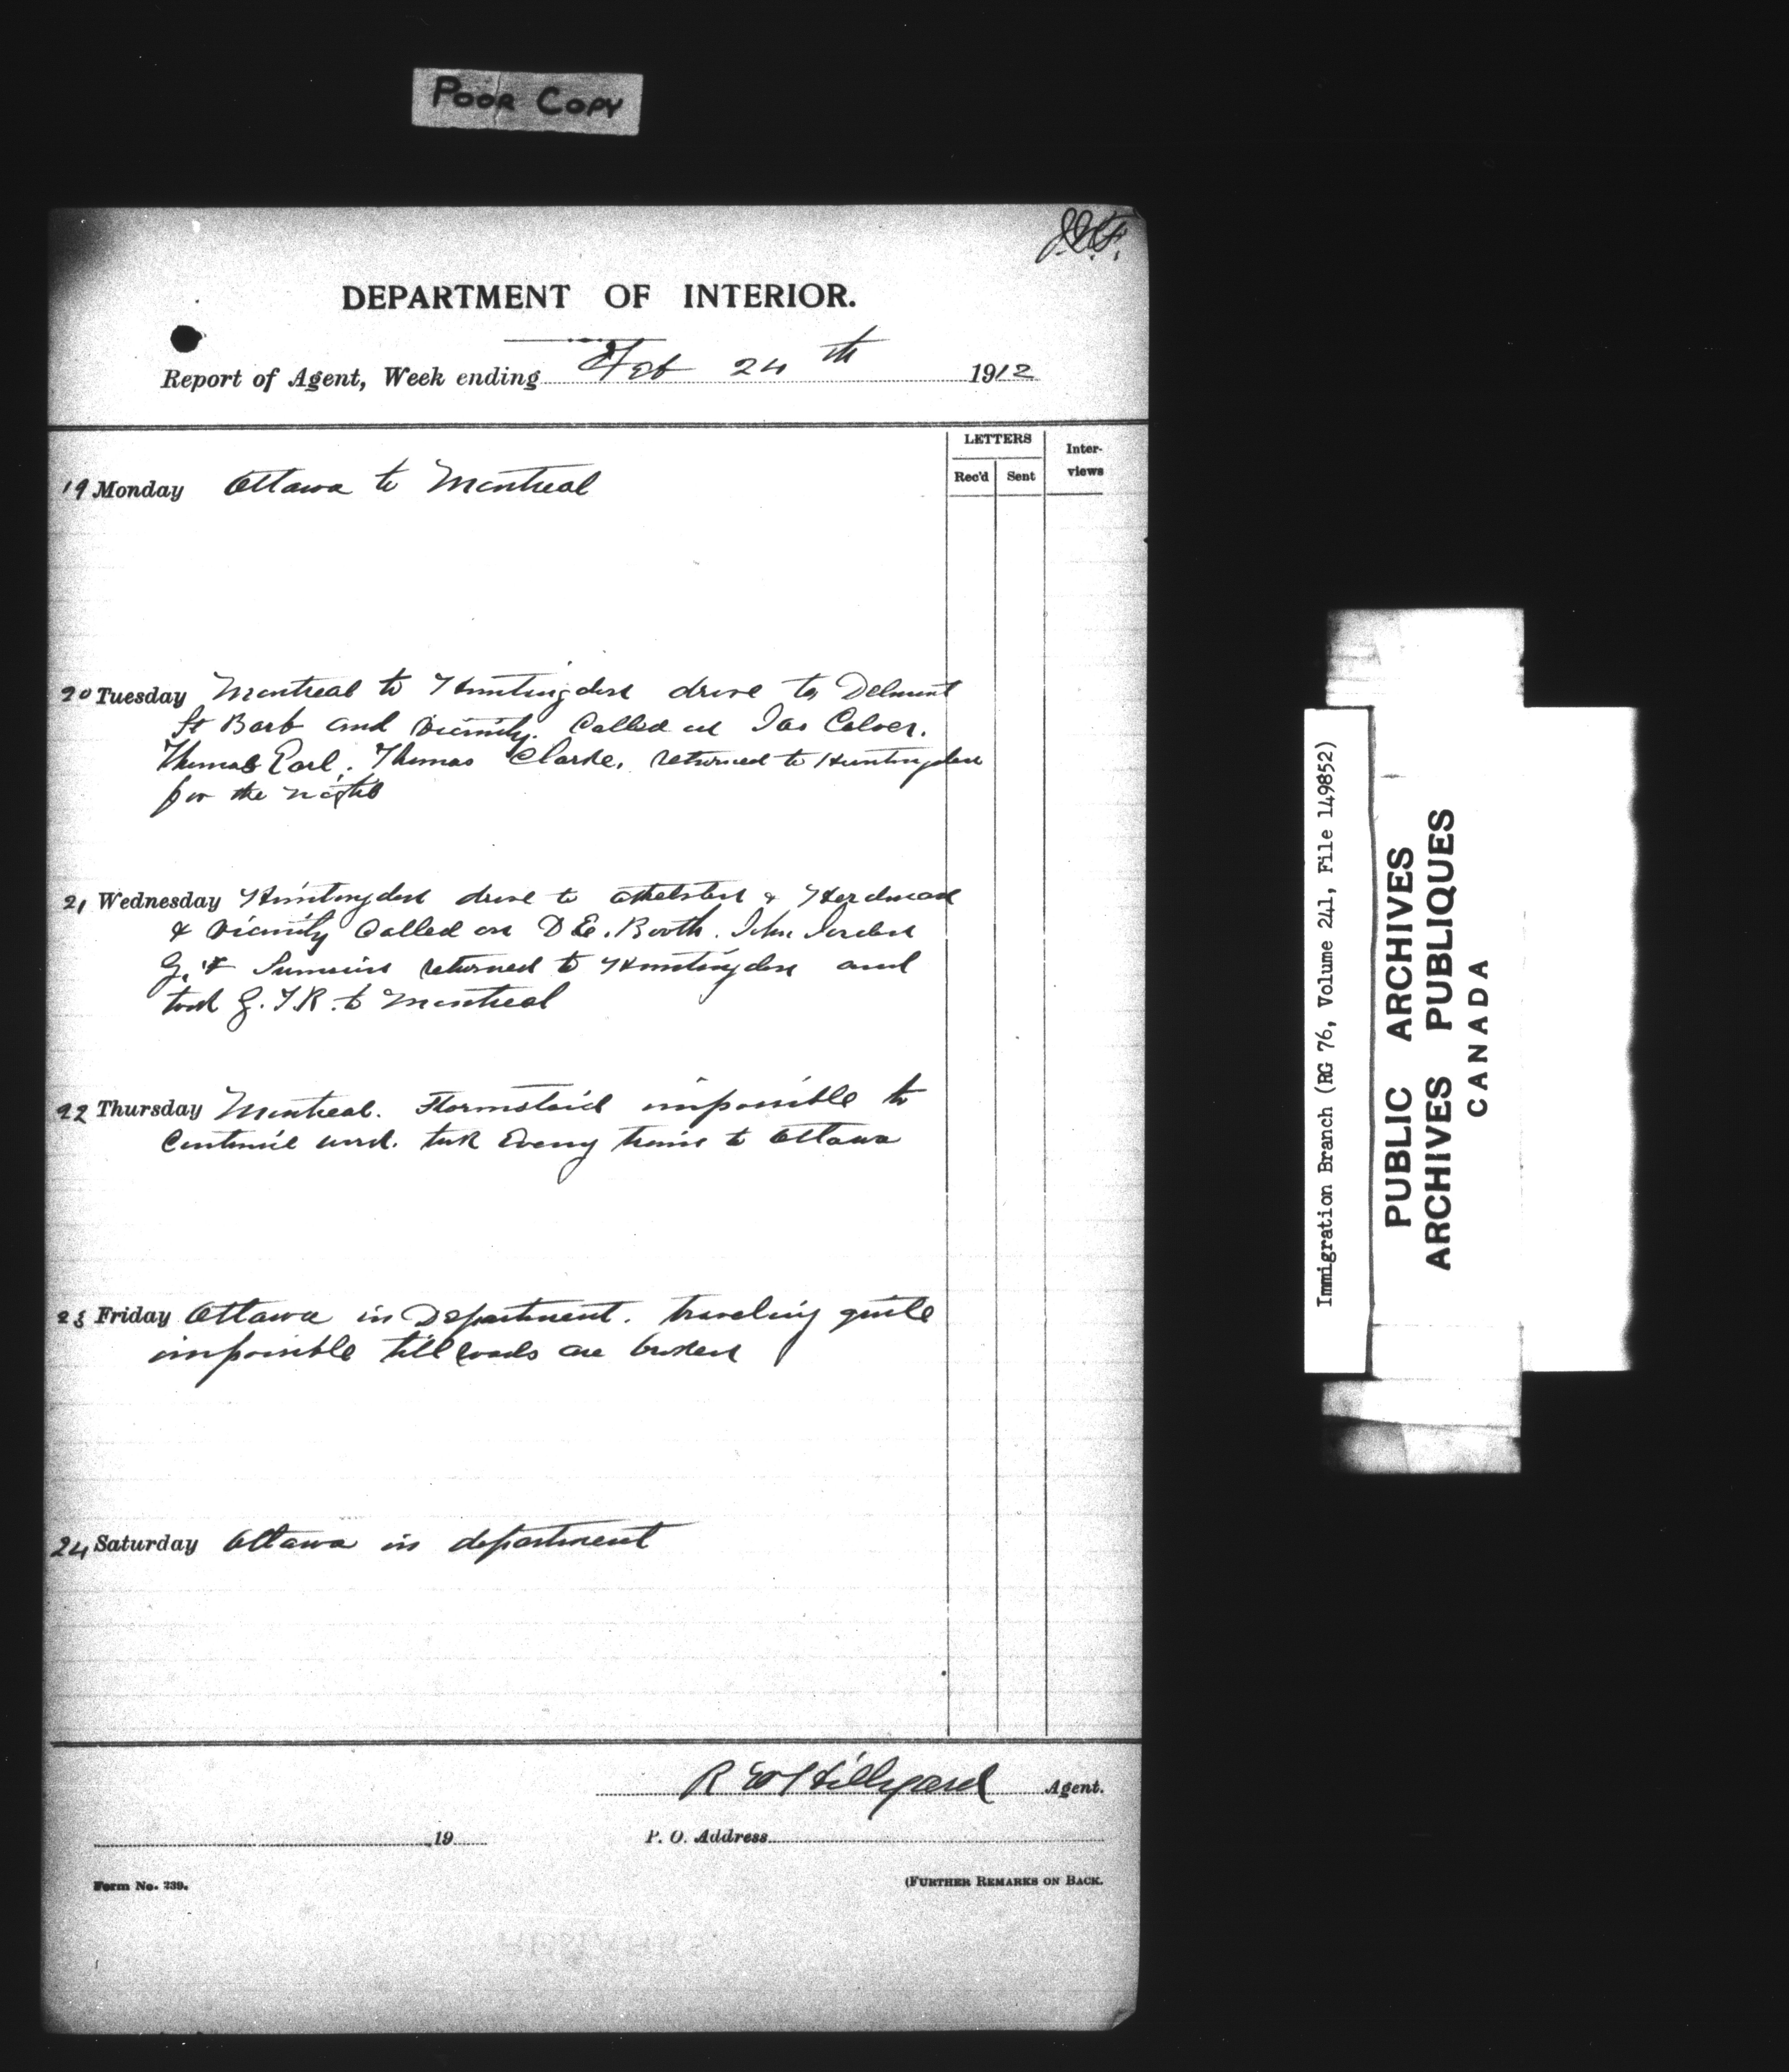 POOR COPY
DEPARTMENT OF INTERIOR.
Report of Agent, Week ending Feb 24th 1912
LETTERS
Inter-
views
Rec'd Sent
19 Monday Ottawa to Montreal
20 Tuesday Montreal to Huntingdon drive to
St Barb and vicinity. Called on Jas
Thomas Earl. Thomas Clarke. returned to Huntingdon
for the night
21 Wednesday Huntingdon drive to Athelstan & Herdman
& vicinity Called on D E. Booth. John
G. returned to Huntingdon and
took G. T R. to Montreal
22 Thursday Montreal. Stormstaid impossible to
Continue work. took Evening train to Ottawa
23 Friday Ottawa in Department. traveling quite
impossible till roads are broken
24 Saturday Ottawa in department
R W Hillyard Agent.
19 P. O. Address
Form No. 239.
(FURTHER REMARKS ON BACK.
Immigration Branch (RG 76, Volume 241, File 149852)
PUBLIC ARCHIVES
ARCHIVES PUBLIQUES
CANADA